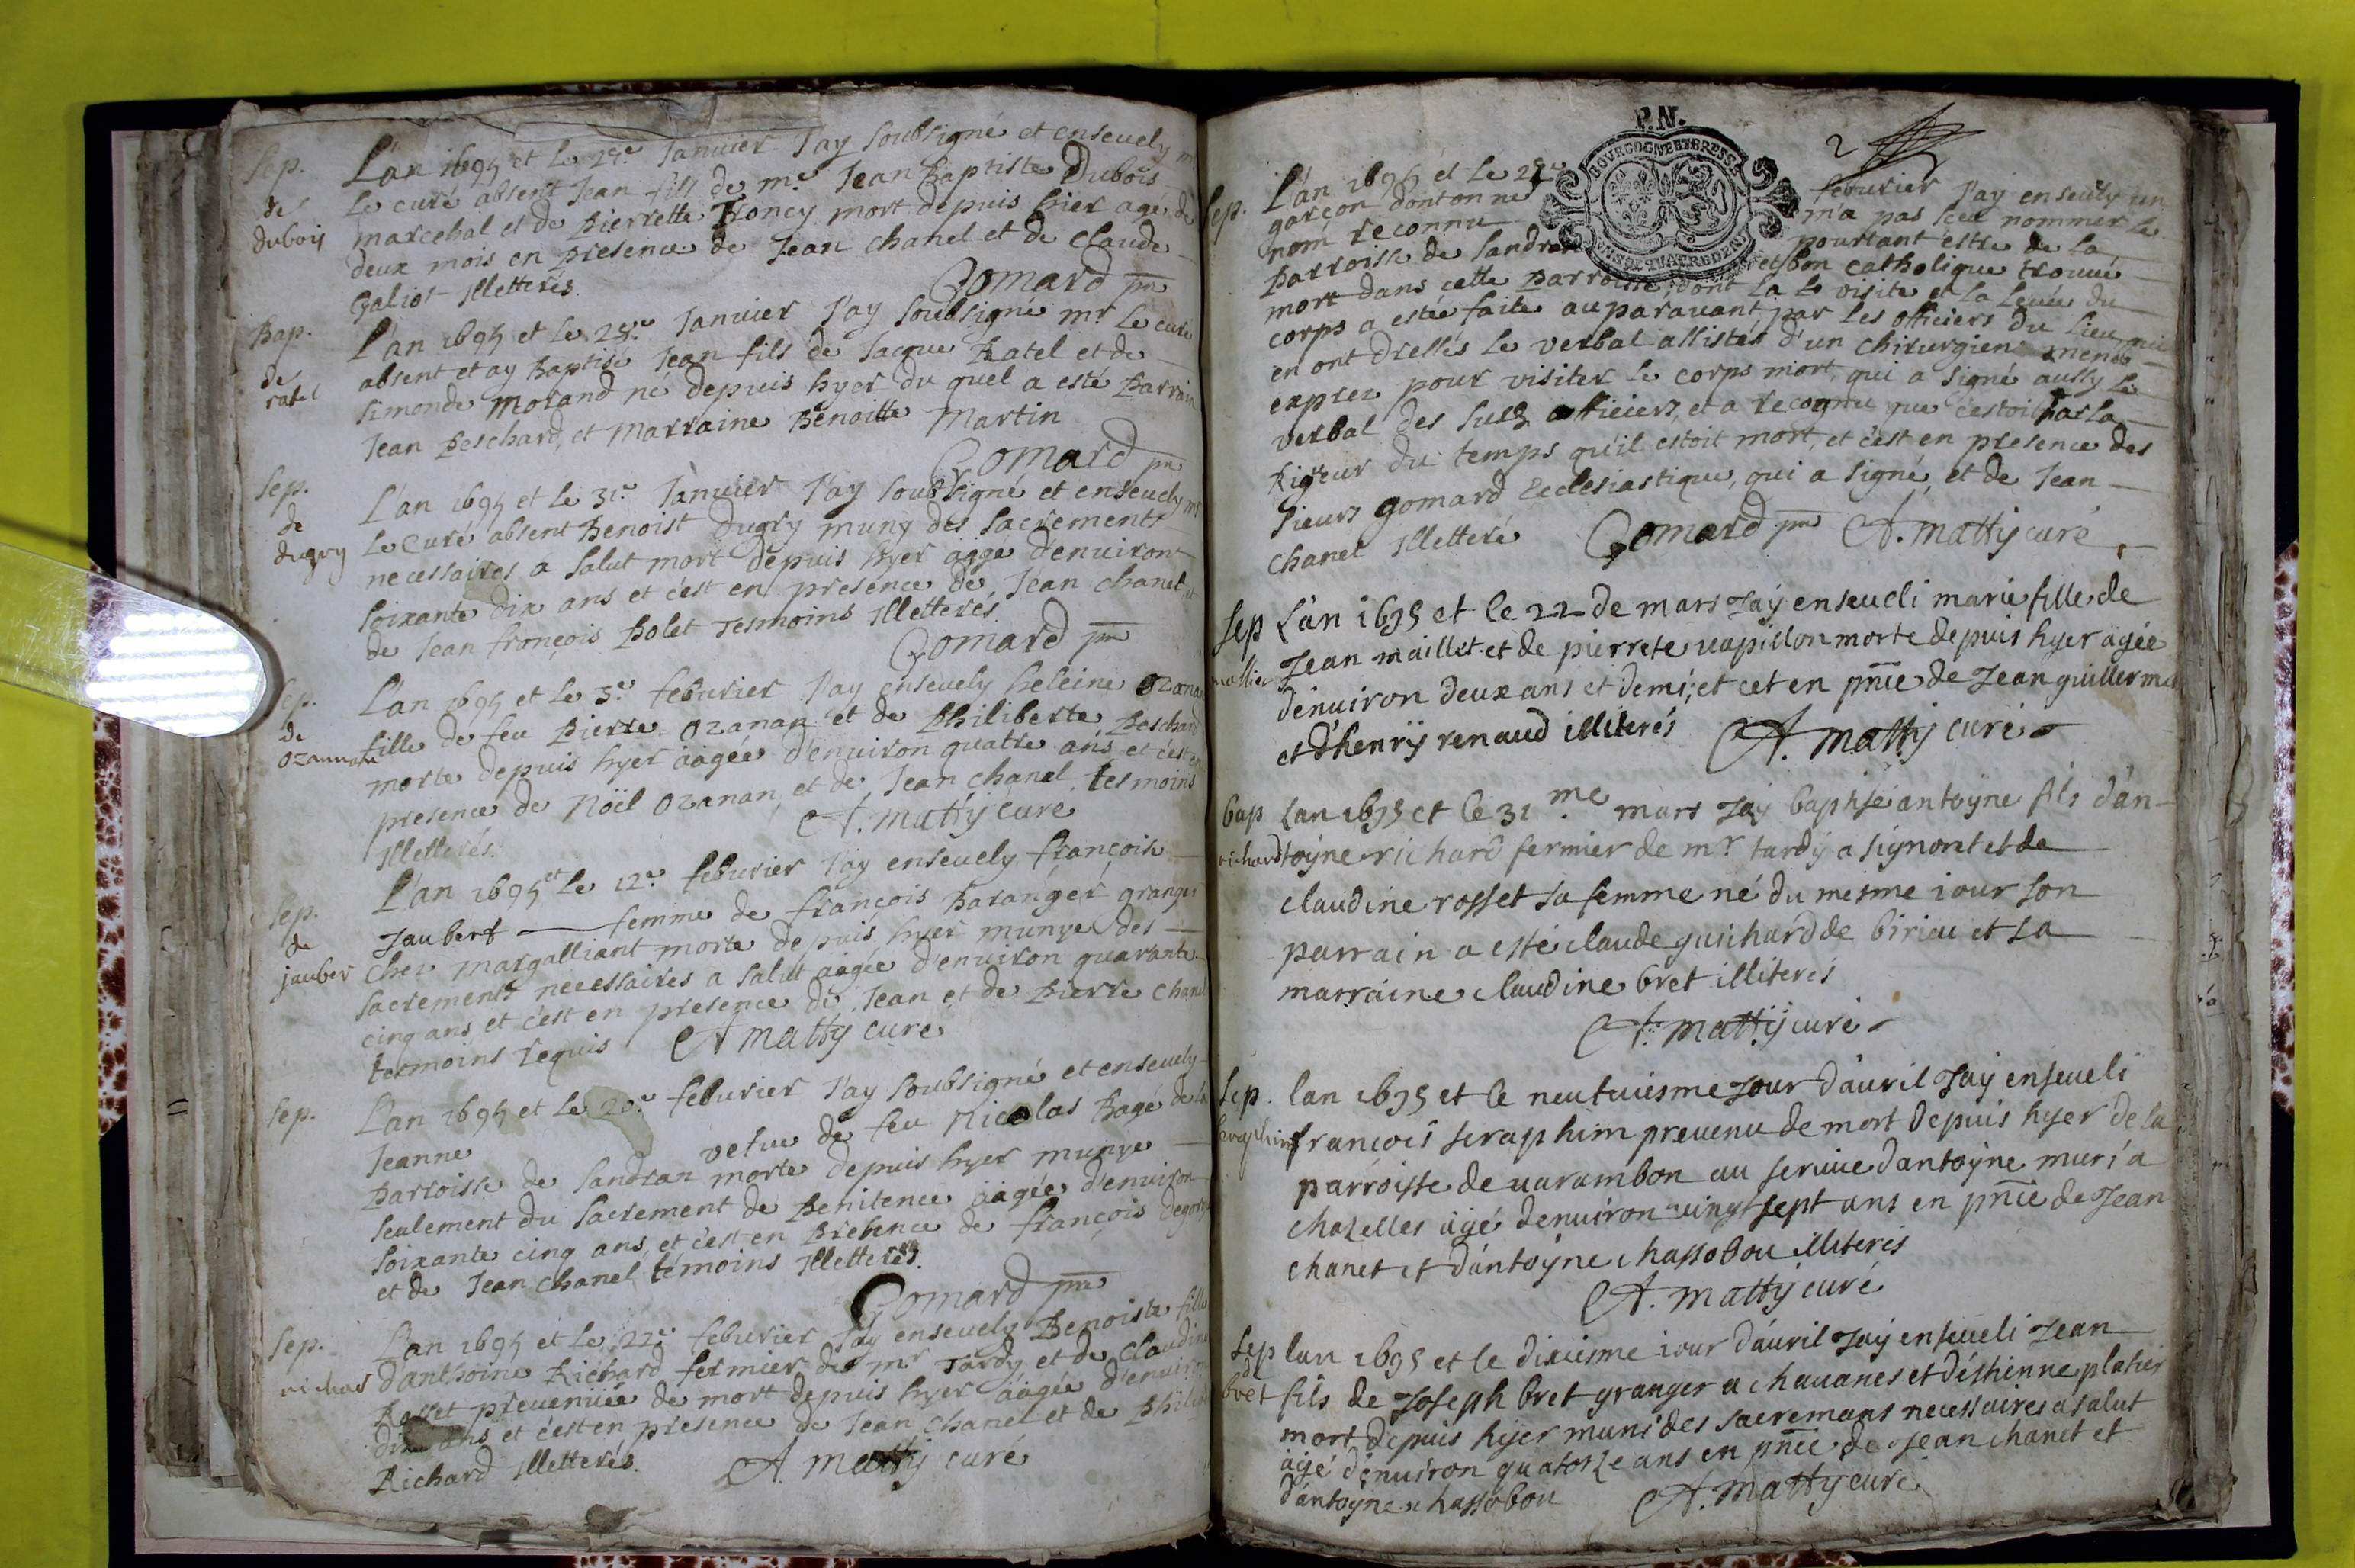 Sep. L'an 1695 et le 27e Januier J'ay soubsigné et enseuely mr
de le curé absent Jean fils de me Jean Baptiste Dubois
dubois marechal et de Pierrette Troncy mort depuis hier age de
deux mois en presence de Jean chanel et de Claude
Galiot Illetterés.
Gomard pre
Bap. L'an 1695 et le 28e Januier J'ay soubsigné mr le curé
de absent et ay baptisé Jean fils de Jacque Ratel et de
ratel Simonde Morand né depuis hyer du quel a esté Parrain
Jean Beschard, et Marraine Benoitte Martin
Gomard pre
Sep. L'an 1695 et le 31e Januier J'ay soubsigné et enseuely mr
de le Curé absent Benoist Dugry muny des sacrements
dugry necessaires a salut mort depuis hyer aage d'enuiron
soixante dix ans et c'est en presence de Jean chanel et
de Jean françois Bolet Tesmoins Illetterés
Gomard pre
Sep. L'an 1695 et le 3e feburier J'ay enseuely heleine Ozanan
de fille de feu Pierre Ozanan et de Philiberte Beschard
ozannan morte depuis hyer aagée d'enuiron quatre ans et c'est en
presence de Nöel Ozanan et de Jean chanel tesmoins
Illetterés.
A. matty curé
Sep. L'an 1695 et le 12e feburier J'ay enseuely françoise
de Jaubert femme de françois Baranger granger
jauber chez margalliant morte depuis hyer munye des
sacrements necessaires a salut aagée d'enuiron quarante
cinq ans et c'est en presence de Jean et de Pierre chanel
tesmoins requis A matty curé
Sep. L'an 1695 et le 20e feburier J'ay soubsigné et enseuely
Jeanne vefue de feu Nicolas Bagé de la
Parroisse de Sandran morte depuis hyer munye
seulement du sacrement de Penitence aagée d'enuiron
soixante cinq ans et c'est en Presence de françois
et de Jean chanel témoins Illetterés.
Gomard pre
Sep. L'an 1695 et le 22e feburier J'ay enseuely Benoiste fille
richar d'anthoine Richard fermier de mr Tardy et de claudine
Rosset preuenüe de mort depuis hyer aagée d'enuiron
dix ans et c'est en presence de Jean chanel et de
Richard Illetterés. A. matty curé
P.N.
2
BOURGOGNE ET BRESSE
Sep. L'an 1695 et le 28e feburier J'ay enseuely un
garçon dont on ne m'a pas sceu nommer le
nom reconnu pourtant estre de la
Parroisse de Sandran et bon catholique trouué
mort dans cette Parroisse, dont la visite et la leuée du
corps a estée faite auparauant par les officiers du lieu qui
en ont dressés le verbal assistés d'un chirurgien mené
exprez pour visiter le corps mort, qui a signé aussy le
verbal des susd officiers, et a reconnu que c'estoit Par la
Rigeur du temps qu'il estoit mort, et c'est en presence des
sieurs gomard Ecclesiastique, qui a signé, et de Jean
chanel Illetteré Gomard pre A. matty curé
Sep L'an 1695 et le 22 de mars J'ay enseueli marie fille de
Jean maillet et de pierrete uapillon morte depuis hyer agée
d'enuiron deux ans et demi, et cet en pnce de Jean guillerme
et d'henrÿ renaud illiterés A. matty curé
bap Lan 1695 et le 31.me mars J'ay baptisé antoyne fils d'an-
richard toyne richard fermier de mr tardy a signoret et de
claudine rosset sa femme né du mesme iour son
parrain a esté claude guichard de birieu et sa
marraine claudine bret illiterés
A. matty curé
Sep. lan 1695 et le neufuiesme Jour d'auril J'ay enseueli
seraphin françois seraphim preuenu de mort depuis hyer de la
parroisse de uarambon au seruice d'antoyne muri a
chazelles agé d'enuiron uingt sept ans en pnce de Jean
chanet et d'antoyne chassobou illiterés
A. matty curé
Sep lan 1695 et le dixiesme iour d'auril J'ay enseueli Jean
bret fils de Joseph bret granger a chauanes et d'éstienne platier
mort depuis hyer muni des sacremans necessaires a salut
agé d'enuiron quatorze ans en pnce de Jean chanet et
d'antoyne chassobou A. matty curé